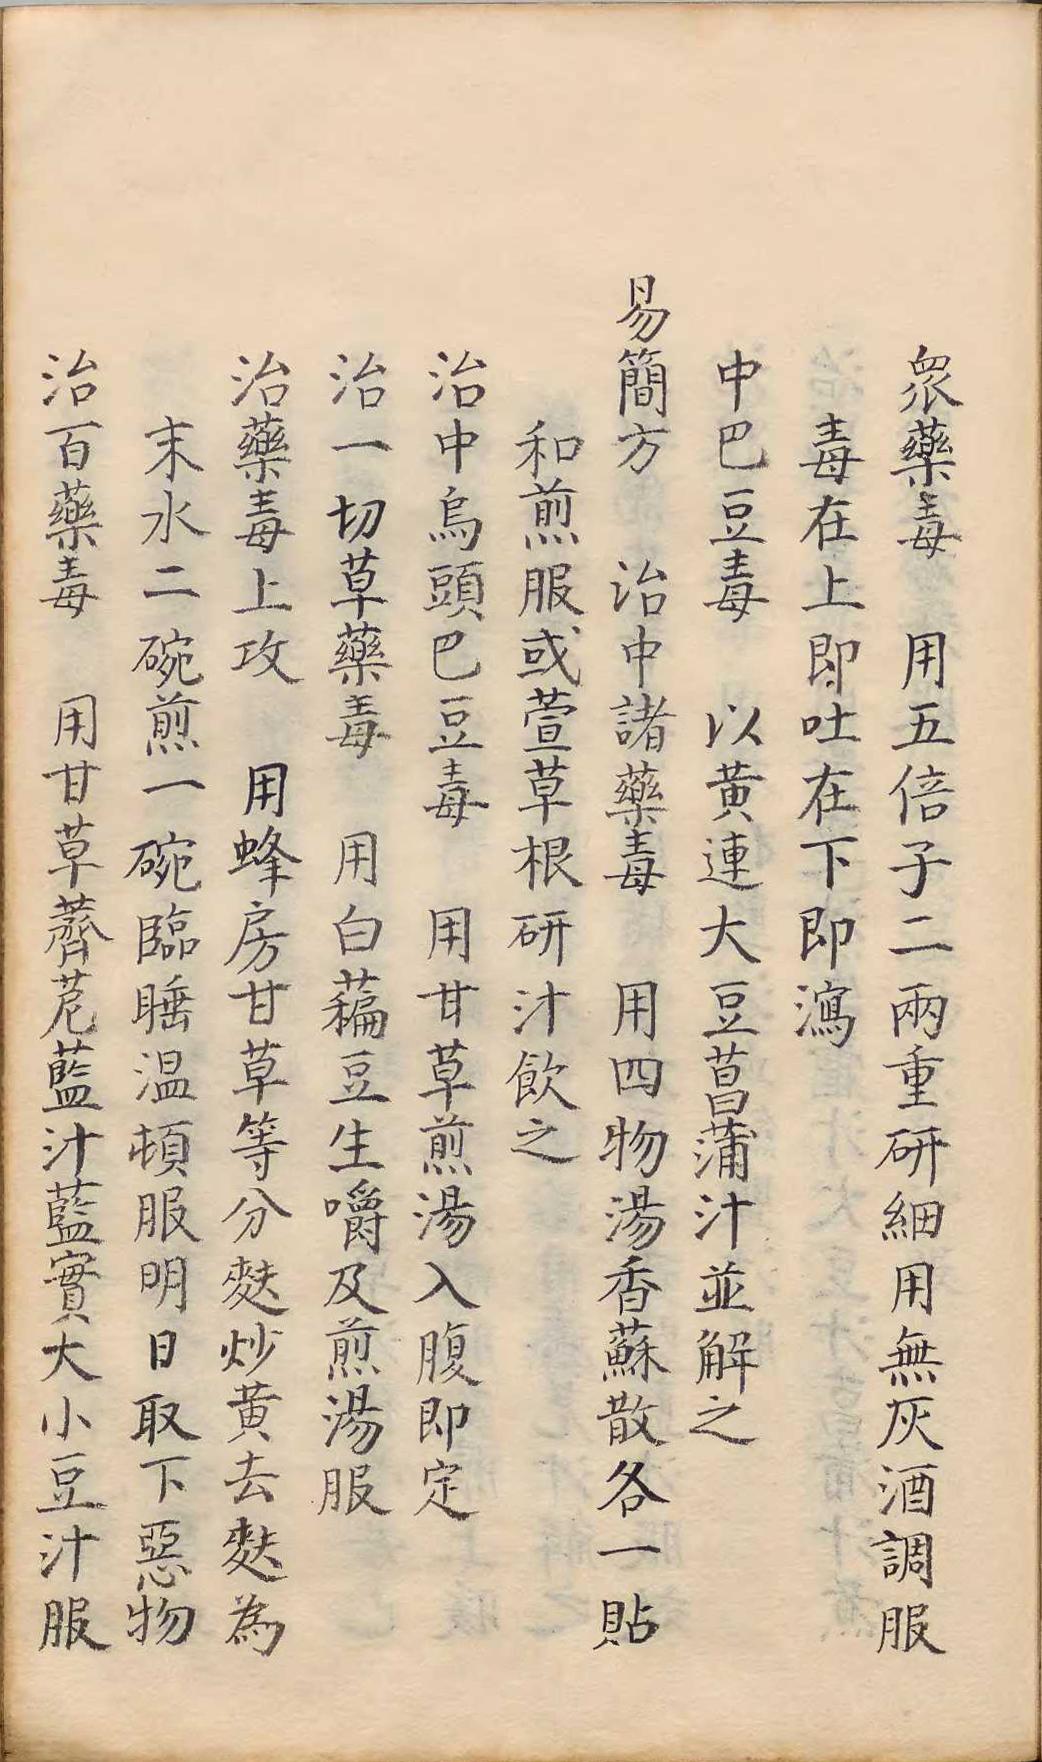 眾藥毒　用五倍子二兩重研細用無灰酒調服
毒在上即吐在下即瀉
中巴豆毒　以黃連大豆菖蒲汁並解之
易簡方　治中諸藥毒　用四物湯香蘇散各一貼
和煎服或萱草根研汁飲之
治中烏頭巴豆毒　用甘草煎湯入腹即定
治一切草藥毒　用白藊豆生嚼及煎湯服
治藥毒上攻　用蜂房甘草等分麩炒黃去麩為
末水二碗煎一碗臨睡温頓服明日取下惡物
治百藥毒　用甘草薺苨藍汁藍實大小豆汁服